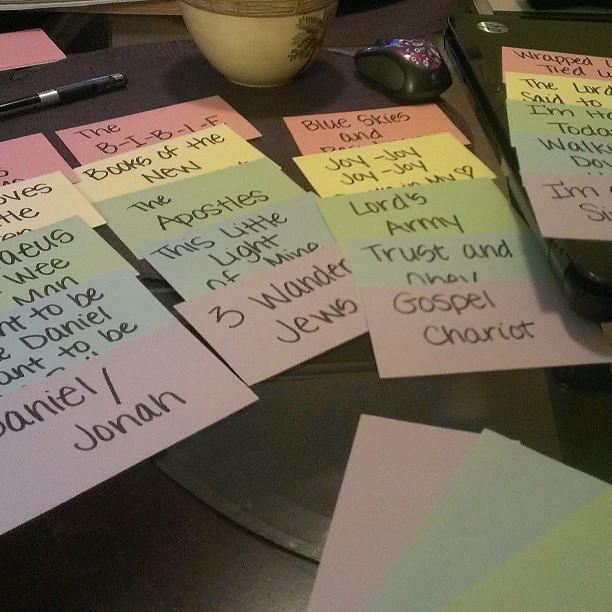 The
B-I-B-L-E
Books of the
New
The
Apostles
This Little
Light
of Mine
3 Wander
Jews
Blue Skies
and
Joy-Joy
Joy-Joy
in My
Lord's
Army
Trust and
Obey
Gospel
Chariot
Wrapped
Tied
The Lord
Said to
I'm H
Toda
Walki
I'm
Wee
Man
to be
Daniel
to be
Daniel/
Jonah
hp